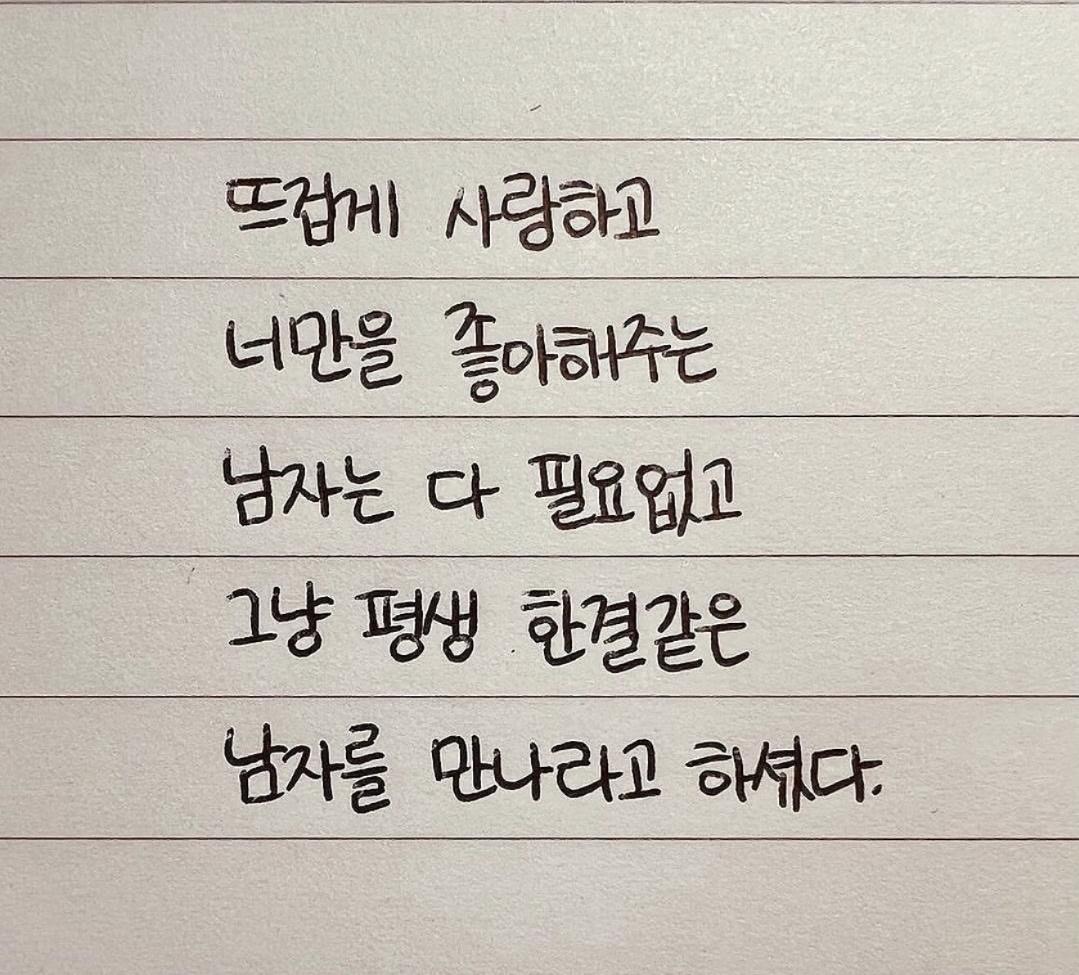 뜨겁게 사랑하고
너만을 좋아해주는
남자는 다 필요없고
그냥 평생 한결같은
남자를 만나라고 하셨다.